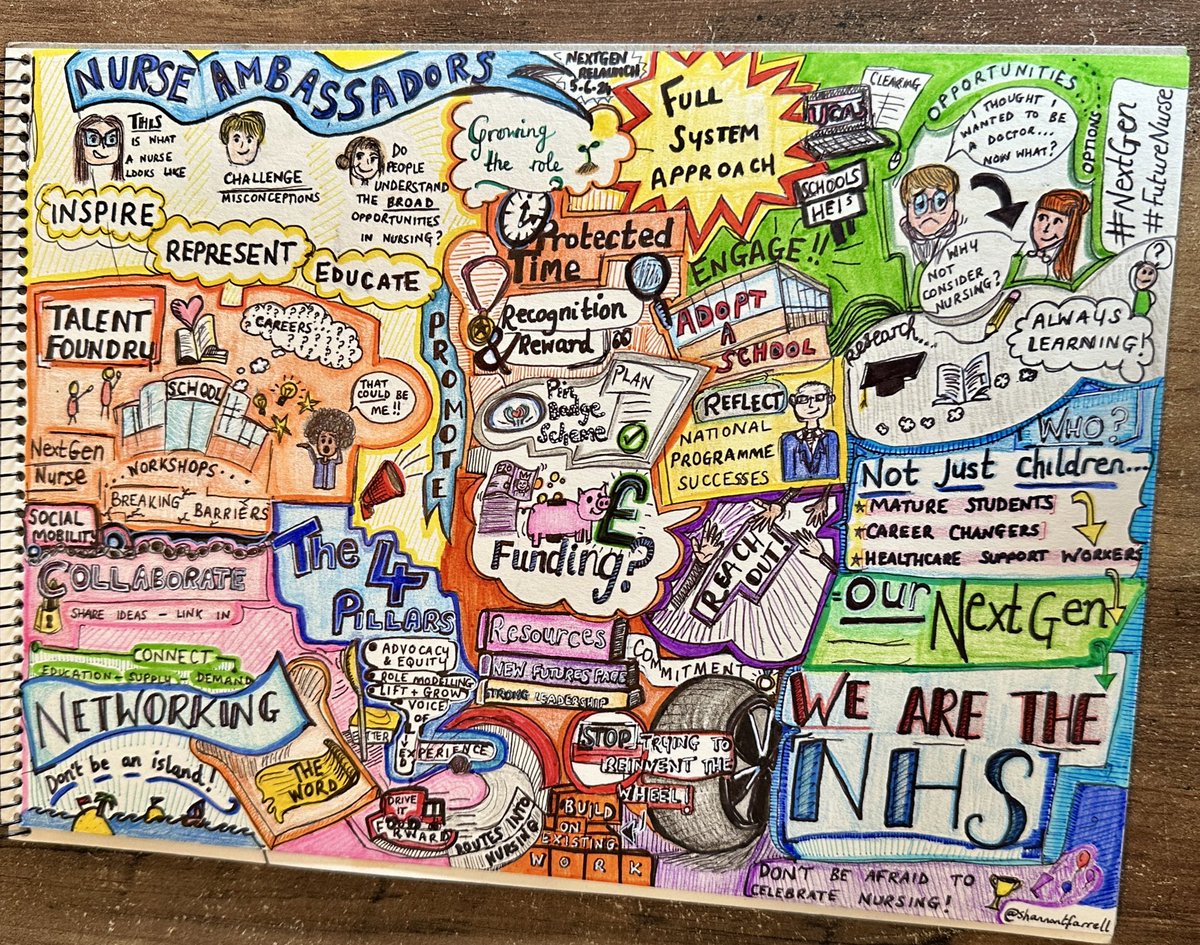 NURSE AMBASSADORS
NEXTGEN
RELAUNCH
5.6.24
THIS
IS WHAT
A NURSE
LOOKS LIKE
CHALLENGE
MISCONCEPTIONS
DO
PEOPLE
UNDERSTAND
THE BROAD
OPPORTUNITIES
IN NURSING?
INSPIRE
REPRESENT
EDUCATE
PROMOTE
Growing
the role
FULL
SYSTEM
APPROACH
CLEARING
UCAS
SCHOOLS
HEIs
ENGAGE!!
OPPORTUNITIES...
OPTIONS...
I THOUGHT I
WANTED TO BE
A DOCTOR...
NOW WHAT?
WHY
NOT
CONSIDER
NURSING?
#NextGen
#FutureNurse
?
TALENT
FOUNDRY
CAREERS...
SCHOOL
THAT
COULD BE
ME!!
NextGen
Nurse
WORKSHOPS...
BREAKING
BARRIERS
SOCIAL
MOBILITY
Protected
Time
Recognition
& Reward
Pin
Badge
Scheme
PLAN
ADOPT
A
SCHOOL
REFLECT
NATIONAL
PROGRAMME
SUCCESSES
Research...
ALWAYS
LEARNING!
WHO?
Not just children...
MATURE STUDENTS
CAREER CHANGERS
HEALTHCARE SUPPORT WORKERS
=OUR NextGen
WE ARE THE
NHS
£
Funding?
REACH
OUT!
COLLABORATE
SHARE IDEAS – LINK IN
CONNECT
EDUCATION – SUPPLY – DEMAND
NETWORKING
Don't be an island!
THE
WORD
The 4
PILLARS
ADVOCACY
& EQUITY
ROLE MODELLING
LIFT + GROW
VOICE
OF
LIVED
EXPERIENCE
DRIVE
IT
FORWARD
ROUTES INTO
NURSING
Resources
NEW FUTURES PAGE
STRONG LEADERSHIP
COMMITMENT
STOP TRYING TO
REINVENT THE
WHEEL!
BUILD
ON
EXISTING
WORK
DON'T BE AFRAID TO
CELEBRATE NURSING!
@shannontfarrell